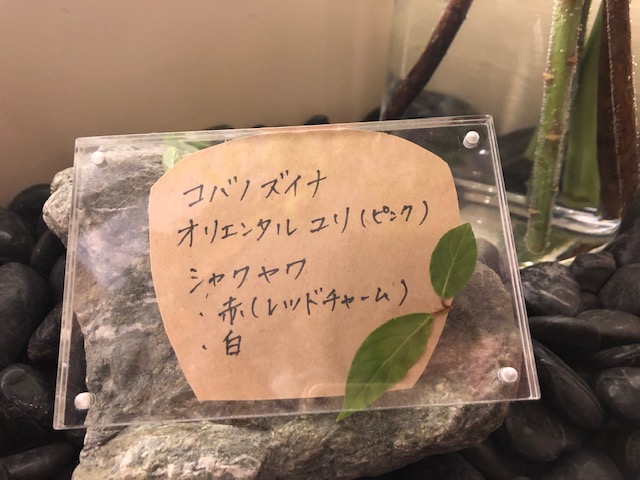 コバノズイナ
オリエンタルユリ(ピンク)
シャクヤワ
・赤(レッドチャーム)
・白